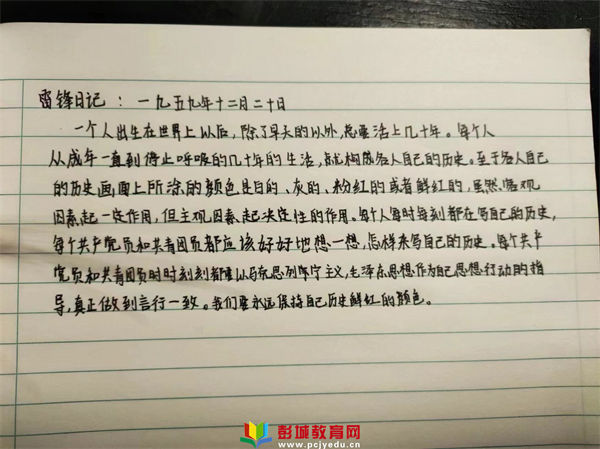 雷锋日记：一九五九年十二月二十日
一个人出生在世界上以后，除了早夭的以外，总要活上几十年。每个人
从成年一直到停止呼吸的几十年的生活，就构成各人自己的历史。至于各人自己
的历史画面上所涂的颜色是白的、灰的、粉红的或者鲜红的，虽然客观
因素起一定作用，但主观因素起决定性的作用。每个人每时每刻都在写自己的历史，
每个共产党员和共青团员都应该好好地想一想，怎样来写自己的历史。每个共产
党员和共青团员时时刻刻都要以马克思列宁主义，毛泽东思想作为自己思想行动的指
导，真正做到言行一致。我们要永远保持自己历史鲜红的颜色。
彭城教育网
www.pcjyedu.cn